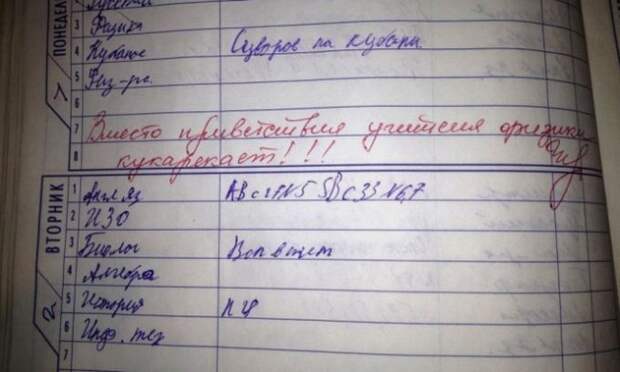 ПОНЕДЕЛ
3 Физика
4 Кубанов Суворов на Кубани
5 Физ-ра
6
7 Вместо приветствия учителя физики
8 кукарекает!!!
ВТОРНИК
1 Англ яз АВ с
2 ИЗО
3 Биолог
4 Алгебра
5 История П 4
6 Инф. тех
7